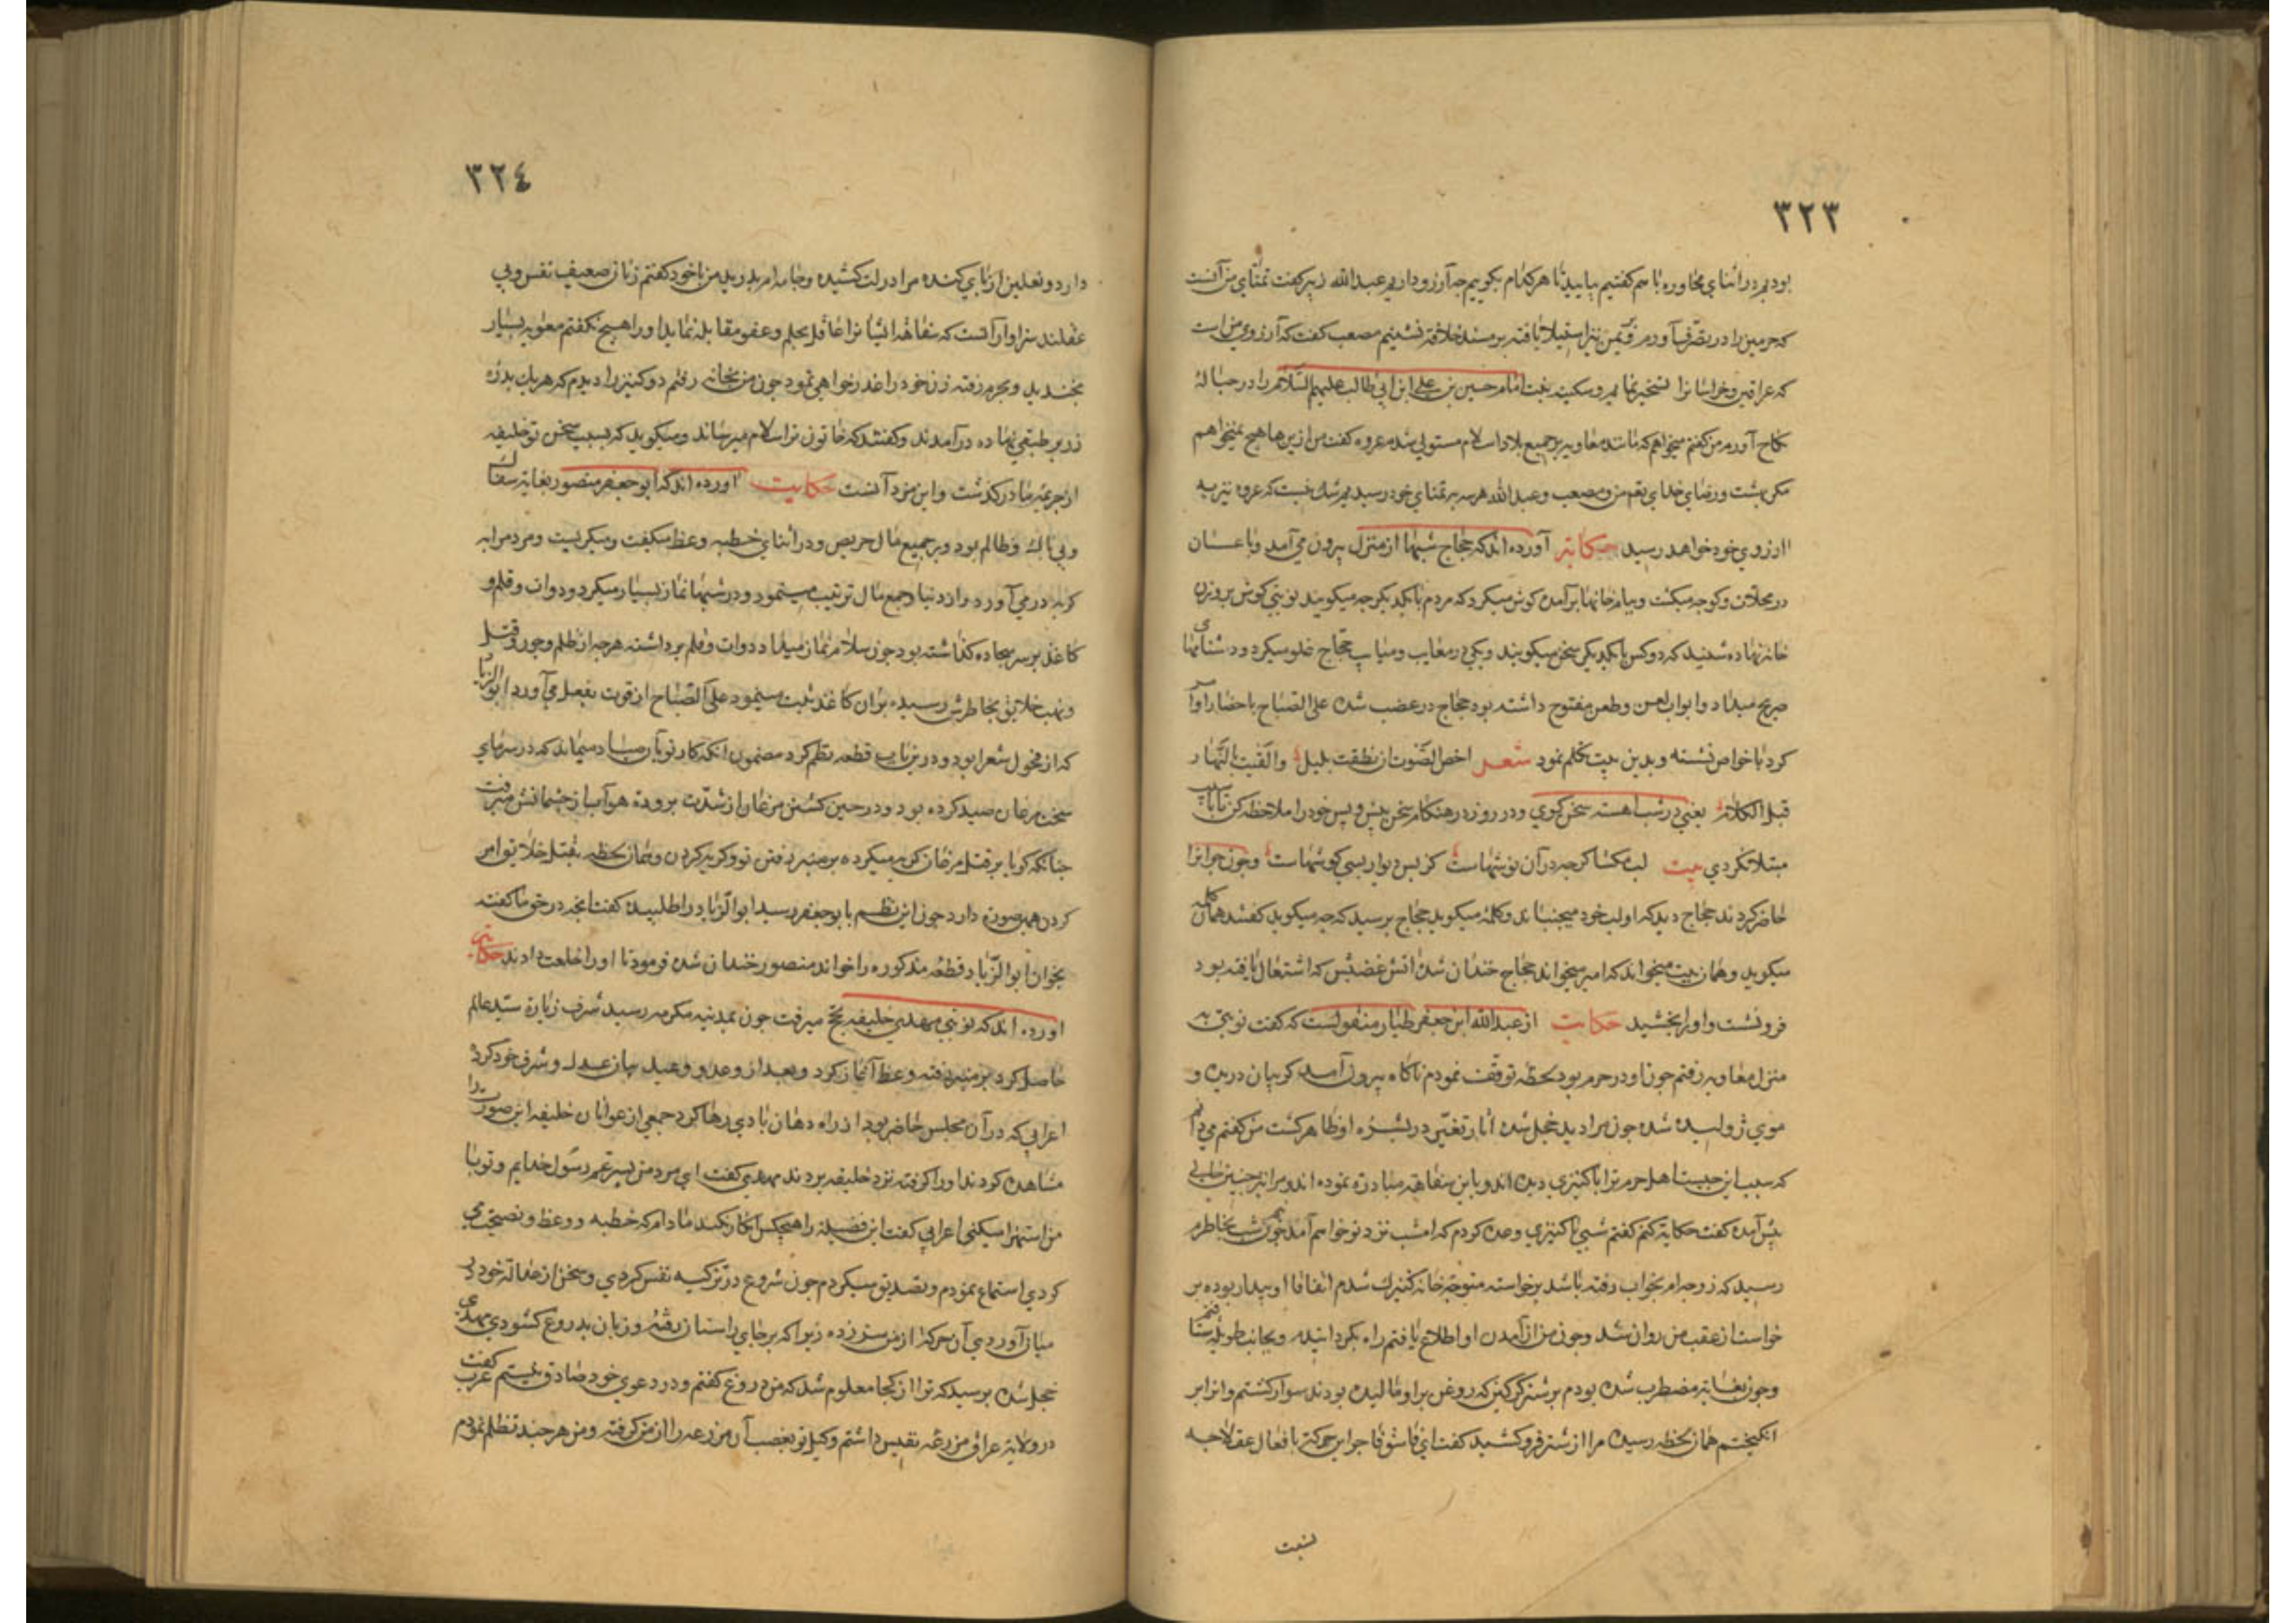 ٣٢٣
بودیم در اثنای محاوره با هم کفتیم بیایید تا هر کدام بکوییم چه آرزو داریم عبدالله زبیر کفت تمنای من آنست
که حرمین را در تصرف آورم و یمن نیز استیلا یافته بر مسند خلافة نشینیم مصعب کفت که آرزوی من است
که عراقین و خراسانرا تسخیر نمایم و سکینه بنت امام حسین بن علی ابن ابی طالب علیهم السلام را در حباله
نکاح آورم من کفتم میخواهم که مانند معاویه بر جمیع بلاد اسلام مستولی شدم عروه کفت من ازینها هیچ نمیخواهم
مکر بهشت و رضای خدای تعم من و مصعب و عبدالله هر سه بر تمنای خود رسیدیم شک نیست که عروه نیز به
ارزوی خود خواهد رسید حکایة آورده اند که حجاج شبها از منزل بیرون می آمد و با عسسان
در محلات و کوچه میکشت و ببام خانها برآمده کوش میکرد که مردم با یکدیکر چه میکویند نوبتی کوش بروزن
خانه نهاده شنید که دو کس با یکدیکر سخن میکویند و یکی در معایب و مثالب حجاج غلو میکرد و دشنامهای
صریح میداد و ابواب لعن و طعن مفتوح داشته بود حجاج در غضب شده علی الصباح باحضار او امر
کرد با خواص نشسته و بدین بیت تکلم نمود شعر اخفض الصوت ان نطقت بلیل والتفت بالنهار
قبل الکلام یعنی در شب اهسته سخن کوی و در روز در هنکام سخن پیش و پس خود را ملاحظه کن تا بیاب
مبتلا نکردی بیت لب مکشا کرچه در آن نوشهاست کز پس دیوار بسی کوشهاست و چون جوانرا
حاضر کردند حجاج دید که او لب خود میجنباند و کلمه میکوید حجاج پرسید که چه میکوید کفتند همان کلمه
میکوید و همان بیت میخواند که امیر میخواند حجاج خندان شد اتش غضبش که اشتعال یافته بود
فرو نشست و او را بخشید حکایت از عبدالله ابن جعفر طیار منقولست که کفت نوبتی به
منزل معاویه رفتم چون او در حرم بود لحظه توقف نمودم ناکاه بیرون آمد کریبان دریده و
موی ژولیده شده چون مرا دید خجل شده آثار تغیر در بشره او ظاهر کشت من کفتم می دانم
که سبب این چیست اهل حرم ترا با کنیزی دیده اند و باین سفاهة مبادرة نموده اند و مرا نیز چنین حالی
پیش آمده کفت حکایة کن کفتم شبی با کنیزی وعده کردم که امشب نزد تو خواهم آمد چون نیم شب بخاطرم
رسید که زوجه ام بخواب رفته باشد برخواسته متوجه خانه کنیزک شدم اتفاقا او بیدار بوده بر
خواست از عقب من روان شد و چون من از آمدن او اطلاع یافتم راه بکردانیده و بجانب طویله شتافتم
و چون بغایة مضطرب شده بودم بر شتر کرکین که روغن بر او مالیده بودند سوار کشتم و او نیز بر
انکیختم همان لحظه رسیده مرا از شتر فرو کشید کفت ای فاسق فاجر این حرکة بافعال عقلا چه
نسبت
٣٢٤
دارد و نعلین از پای کنده مرا در لت کشیده و جامه ام بدرید من با خود کفتم زنان ضعیف نفس و بی
عقلند سزاوار آنست که سفاهة ایشانرا عاقل بحلم و عفو مقابله نماید او را هیچ نکفتم معویه بسیار
بخندید و بحرم رفته زن خود را عذرخواهی نمود چون من بخانه رفتم دو کنیز را دیدم که هر یک بدره
زر بر طبقی نهاده درآمدند و کفتند که خاتون ترا سلام میرساند و میکوید که بسبب سخن تو خلیفه
از جریمه ما درکذشت و این مزد آنست حکایت اورده اند که ابو جعفر منصور بغایة سفاک
و بی باک و ظالم بود و بر جمیع مال حریص و در اثنای خطبه و وعظ میکفت و میکریست و مردمرا به
کریه در می آورد و از دنیا و جمع مال ترتیب مینمود و در شبها نماز بسیار میکرد و دوات و قلم و
کاغذ بر سر سجاده کذاشته بود چون سلام نماز میداد دوات و قلم برداشته هر چه از ظلم و جور و قتل
و نهب خلایق بخاطرش رسیده بران کاغذ ثبت مینمود علی الصباح از قوت بفعل می آورد ابو الزیاد
که از فحول شعرا بود و درین باب قطعه نظم کرد مضمون انکه کار تو بآن صیاد میماند که در سرمای
سخت مرغان صید کرده بود و در حین کشتن مرغان از شدت برودة هوا آب از چشمانش میرفت
چنانکه کویا بر قتل مرغان کریه میکرده بر منبر رفتن تو و کریه کردن و همان لحظه بقتل خلایق امر
کردن همین صورة دارد چون این نظم بابو جعفر رسید ابو الزیاد را طلبیده کفت انچه در حق ما کفته
بخوان ابو الزیاد قطعه مذکوره را خواند منصور خندان شده فرمود تا او را خلعت دادند حکایة
اورده اند که نوبتی مهدی خلیفه بحج میرفت چون بمدینه مکرمه رسید شرف زیارة سید عالم
حاصل کرد بر منبر رفته وعظ آغاز کرد و بعد از وعد و وعید بیان عدل و شرف خود کرد
اعرابی که در آن مجلس حاضر بود از راه دهان بادی رها کرد جمعی از عوانان خلیفه این صورة را
مشاهده کردند او را کرفته نزد خلیفه بردند مهدی کفت ای مرد من پسر عم رسول خدایم و تو با
من استهزا میکنی اعرابی کفت این فضیلة را هیچکس انکار نکند مادام که خطبه و وعظ و نصیحت می
کردی استماع نمودم و تصدیق میکردم چون شروع در تزکیه نفس کردی و سخن از عدالة خود در
میان آوردی آن حرکة از من سر زده زیرا که بر جای راستان رفته و زبان بدروغ کشودی مهدی
خجل شده پرسید که ترا از کجا معلوم شد که من دروغ کفتم و در دعوی خود صادق نیستم عرب کفت
در ولایة عراق مزرعه نفیس داشتم وکیل تو بغصب آن مزرعه را از من کرفته و من هر چند تظلم نمودم